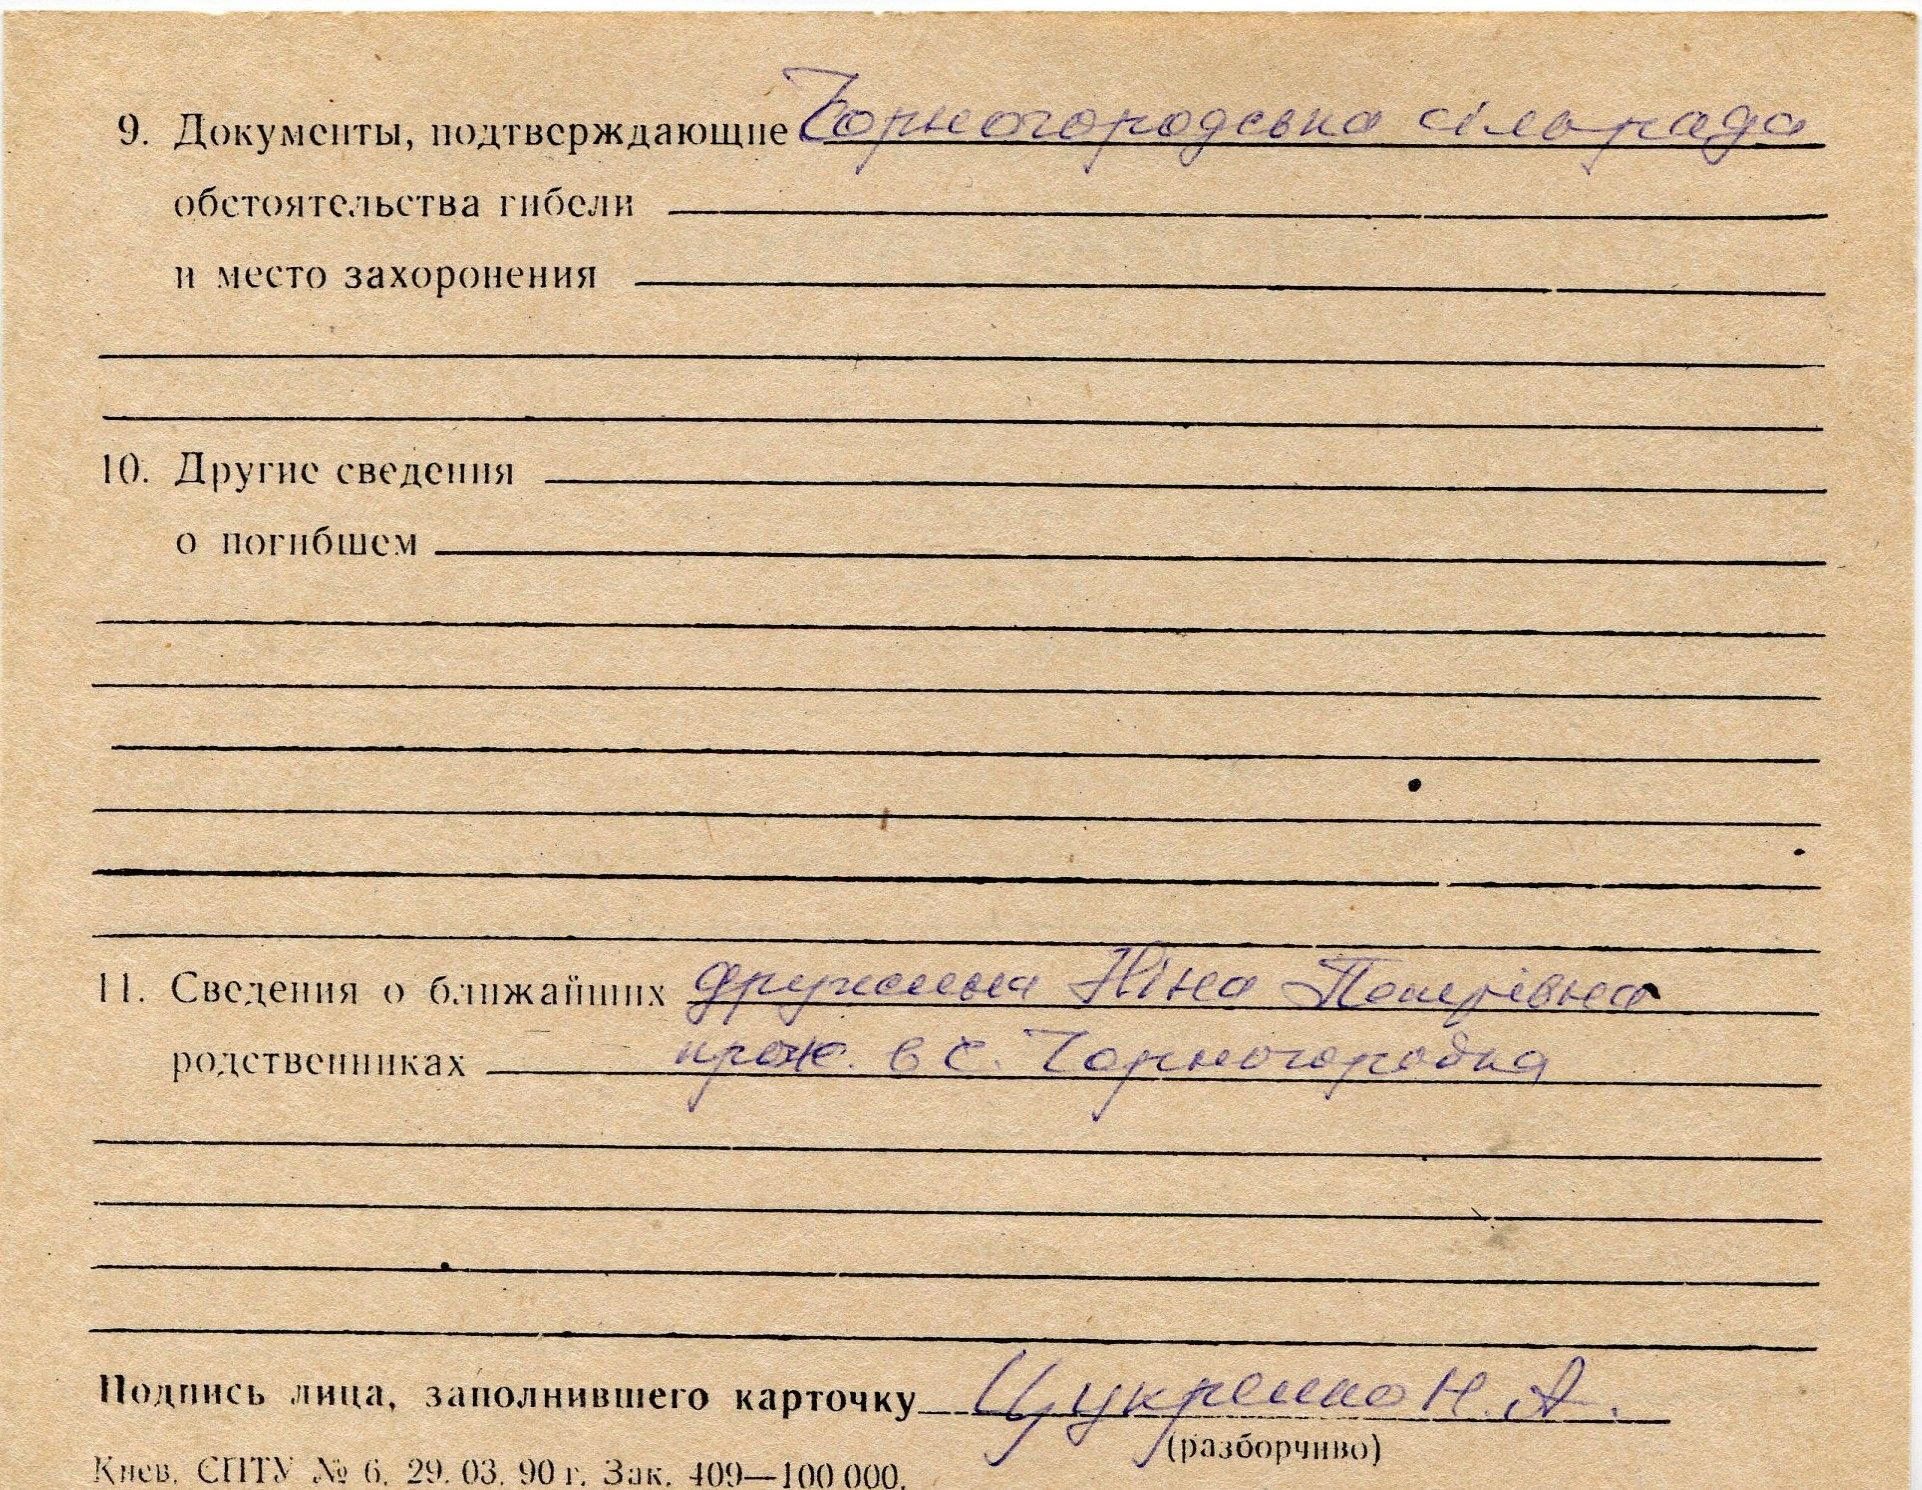 9. Документы, подтверждающие Чорногородська сільрада
обстоятельства гибели
и место захоронения
10. Другие сведения
о погибшем
11. Сведения о ближайших дружина Ніна Петрівна
родственниках прож. в с. Чорногородка
Подпись лица, заполнившего карточку Цукренко Н. А.
(разборчиво)
Киев. СПТУ № 6. 29. 03. 90 г. Зак. 409—100 000.